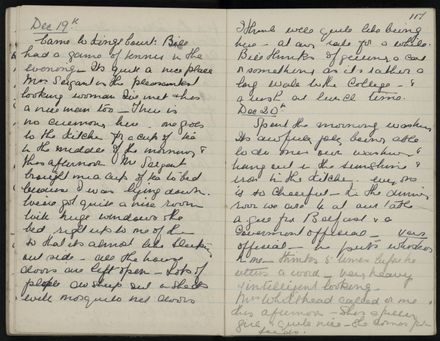 Dec 19th
Came to Kings Court. Bill
had a game of tennis in the
evening. Its quite a nice place
Mrs Sargant is the pleasantest
looking woman Ive met & hes
a nice man too — There is
no ceremony here — one goes
to the kitchen for a cup of tea
in the middle of the morning &
this afternoon Mr Sargant
brought me a cup of tea to bed
because I was lying down.
Weve got quite a nice room
with huge windows the
bed right up to one of them
so that its almost like sleeping
out side — all the house
doors are left open — lots of
people sleep out in sheds
with mosquito net doors
107
I think well quite like being
here — at any rate for a while.
Bill thinks of getting a car
or something as its rather a
long walk to the College — &
a rush at lunch time.
Dec 20th
Spent the morning washing
Its awfully jolly being able
to do ones own washing — &
hang out in the sunshine &
iron in the kitchen — every one
is so cheerful — In the dining
room we are at a table
a girl from Belfast & a
Government official — very
official — he puts
him — thinks & times before he
utters a word — very heavy
& intelligent looking.
Mrs Whitehead called on me
this afternoon — Shes a
girl — quite nice — &